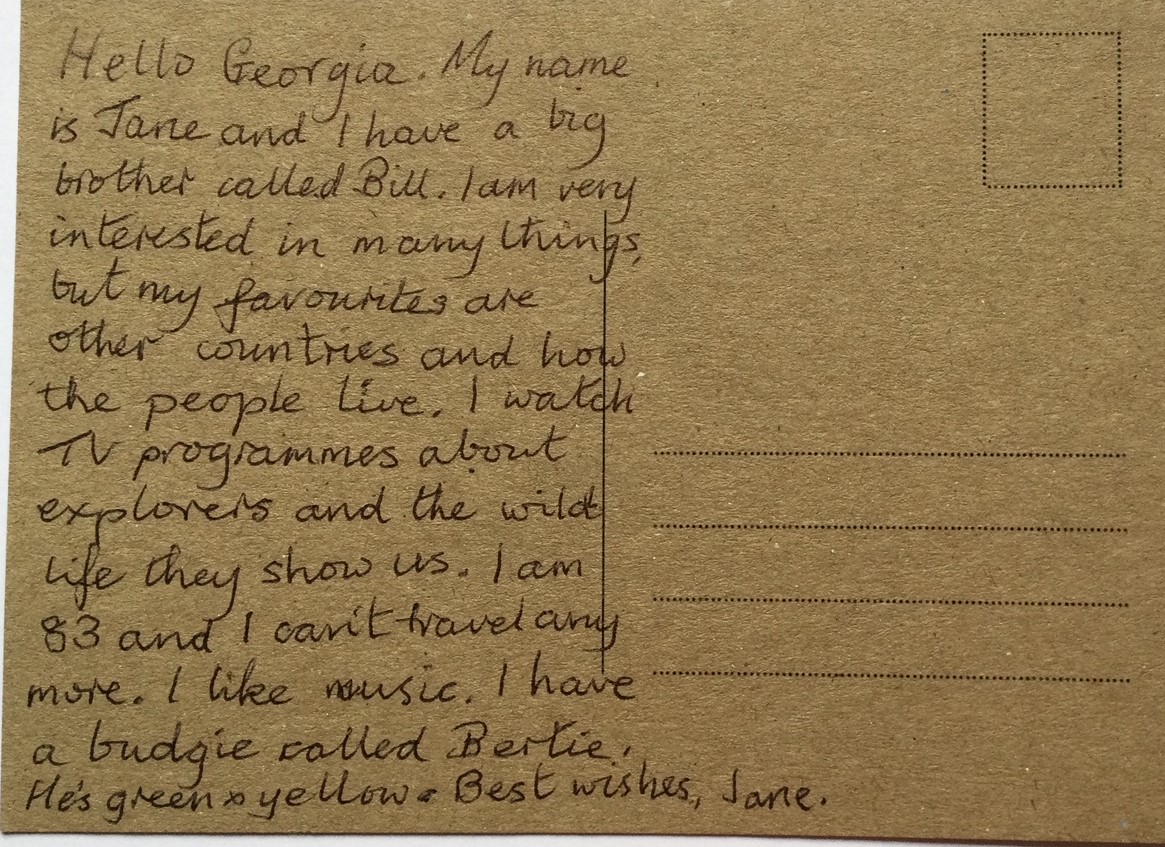 Hello Georgia. My name
is Jane and I have a big
brother called Bill. I am very
interested in many things,
but my favourites are
other countries and how
the people live. I watch
TV programmes about
explorers and the wild
life they show us. I am
83 and I can't travel any
more. I like music. I have
a budgie called Bertie.
He's green & yellow. Best wishes, Jane.